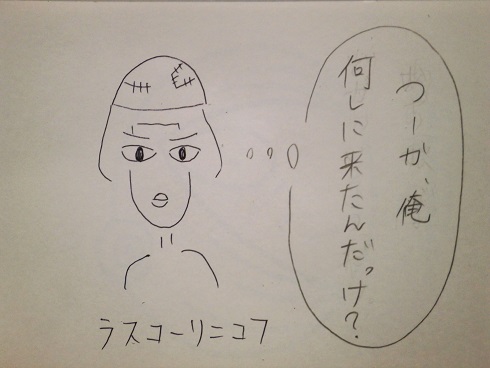 つーか、俺
何しに来たんだっけ?
ラスコーリニコフ